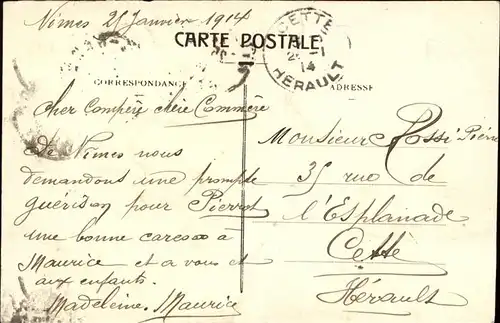 Nimes 25 Janvier 1914
CARTE POSTALE
CETTE
14
HÉRAULT
CORRESPONDANCE
ADRESSE
Cher Compère Chère Commère
De Nîmes nous
demandons une prompte
guerison pour Pierrot
une bonne caresse à
Maurice et a vous et
aux enfants.
Madeleine. Maurice
Monsieur Rossi Pierre
35 rue de
l'Esplanade
Cette
Hérault